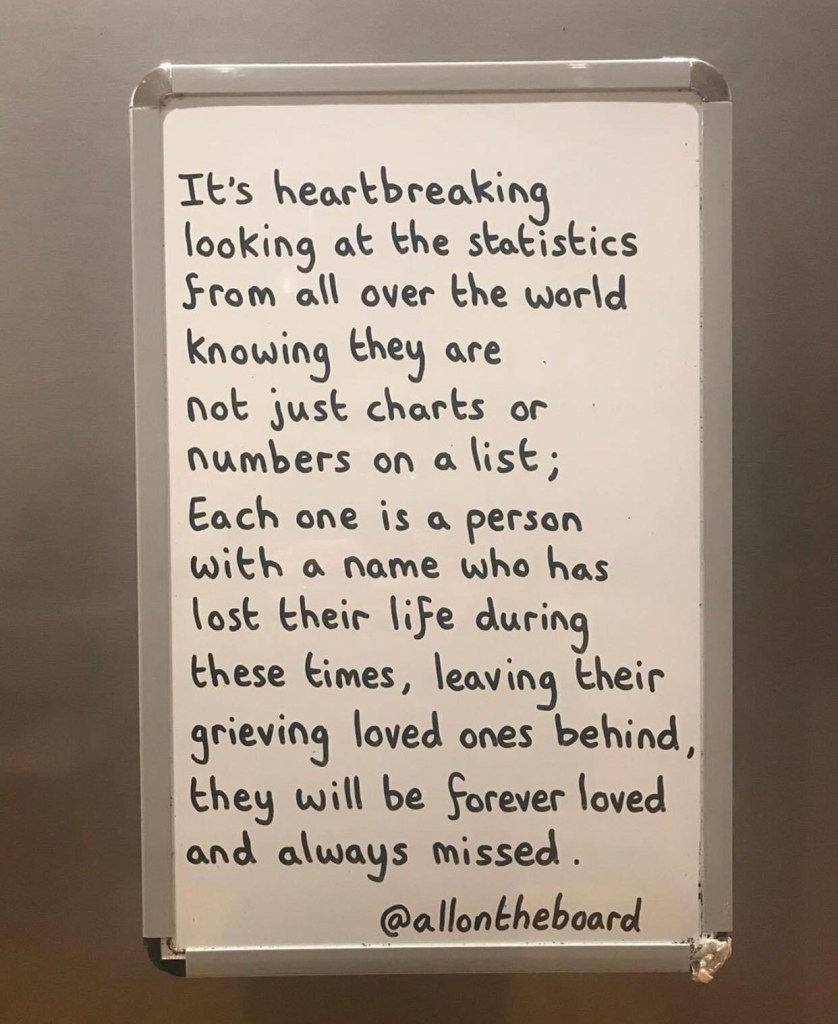 It's heartbreaking
looking at the statistics
from all over the world
knowing they are
not just charts or
numbers on a list;
Each one is a person
with a name who has
lost their life during
these times, leaving their
grieving loved ones behind,
they will be forever loved
and always missed.
@allontheboard